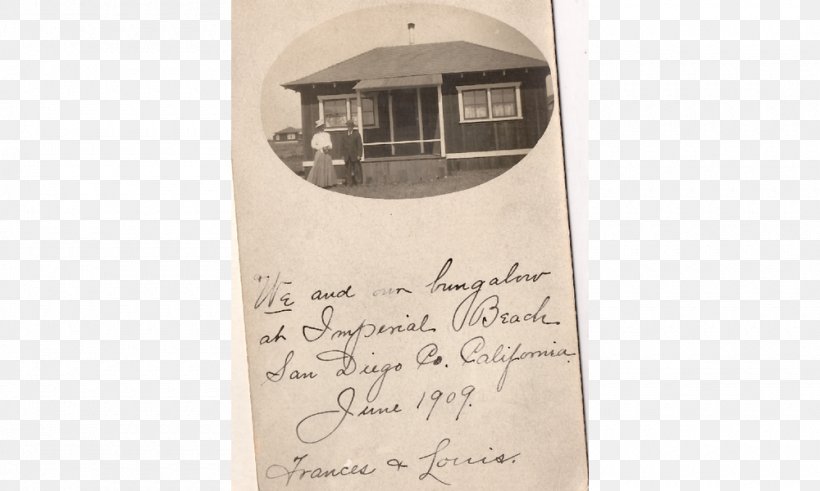 We and our bungalow
at Imperial Beach
San Diego Co. California.
June 1909.
Frances & Louis.